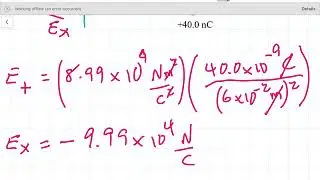 Working offline can error occurred
Details
E_x
+40.0 nC
E_+ = (8.99 x 10^9 Nm^2/C^2)(40.0 x 10^-9 C/(6 x 10^-2 m)^2)
E_x = - 9.99 x 10^4 N/C